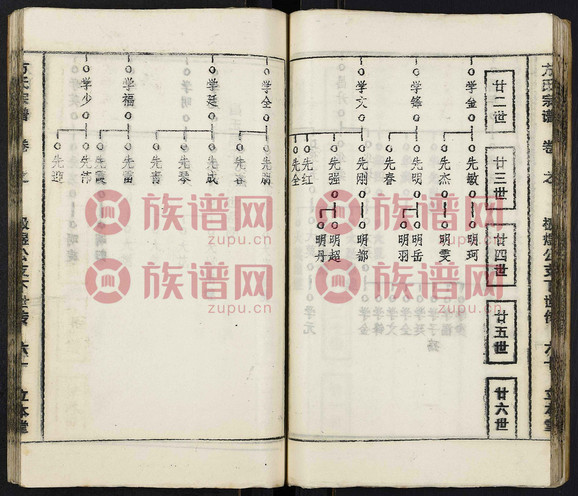 方氏宗谱
卷之
六十
立本堂
廿二世
廿三世
廿四世
廿五世
廿六世
学金
学锋
学文
先敏
先杰
先明
先春
先刚
先强
先红
先全
明珂
明雯
明岳
明羽
明都
明超
明丹
学金
学延
学福
学少
先成
先琴
先青
先富
先伟
先迎
方氏宗谱
卷之
立本堂
族谱网
zupu.cn
族谱网
zupu.cn
族谱网
zupu.cn
族谱网
zupu.cn